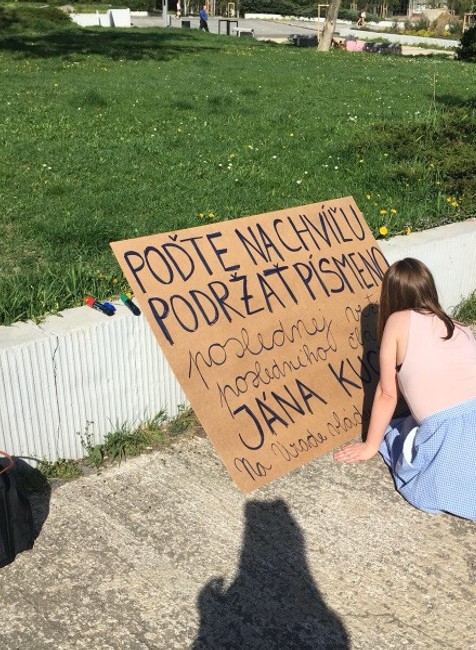 POĎTE NA CHVÍĽU
PODRŽAŤ PÍSMENO
poslednej
posledného
JÁNA KUC
Na Úrade vlád